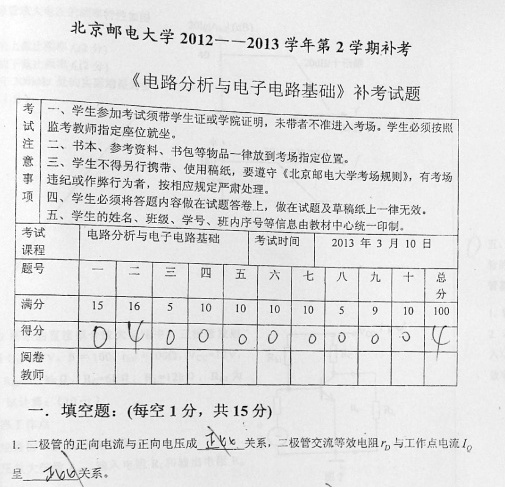 北京邮电大学 2012——2013 学年第 2 学期补考
《电路分析与电子电路基础》补考试题
考试注意事项
一、学生参加考试须带学生证或学院证明，未带者不准进入考场。学生必须按照
监考教师指定座位就坐。
二、书本、参考资料、书包等物品一律放到考场指定位置。
三、学生不得另行携带、使用稿纸，要遵守《北京邮电大学考场规则》，有考场
违纪或作弊行为者，按相应规定严肃处理。
四、学生必须将答题内容做在试题答卷上，做在试题及草稿纸上一律无效。
五、学生的姓名、班级、学号、班内序号等信息由教材中心统一印制。
考试课程 电路分析与电子电路基础 考试时间 2013 年 3 月 10 日
题号 一 二 三 四 五 六 七 八 九 十 总分
满分 15 16 5 10 10 10 10 5 9 10 100
得分 0 4 0 0 0 0 0 0 0 0 4
阅卷教师
一．填空题：(每空 1 分，共 15 分)
1. 二极管的正向电流与正向电压成 正比 关系，二极管交流等效电阻 r_D 与工作点电流 I_Q
呈 正比 关系。